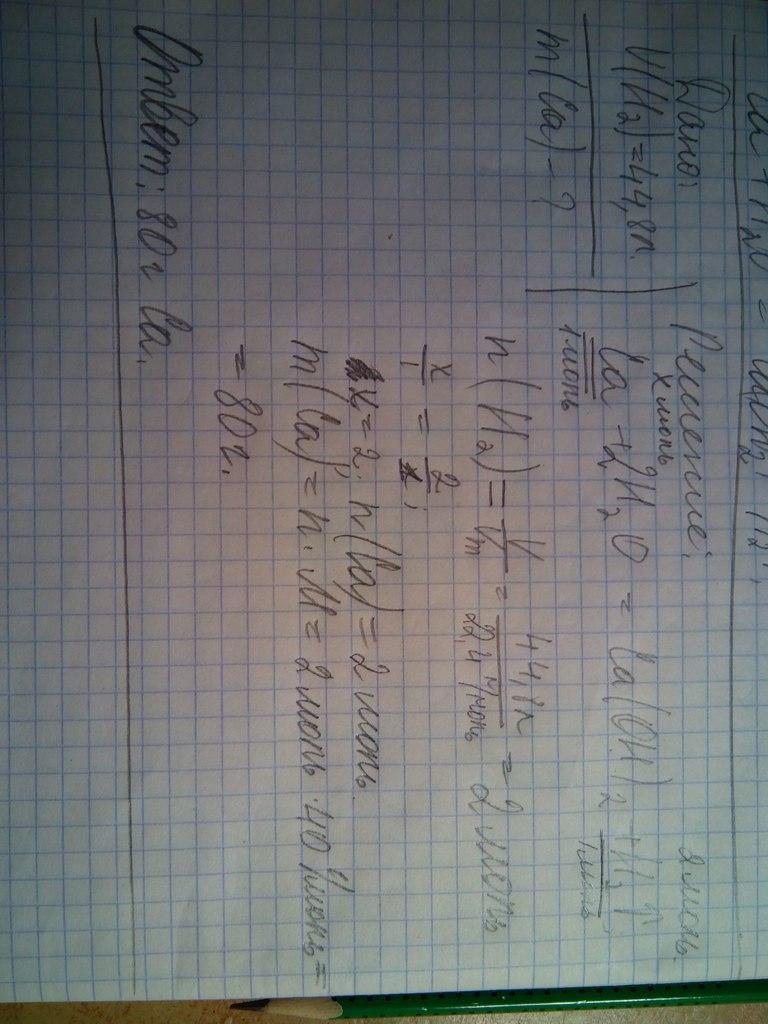 Дано:
V(H₂)=44,8л.
m(Ca)-?
Решение:
x моль 2 моль
Ca + 2H₂O = Ca(OH)₂ + H₂↑
1моль 1моль
n(H₂) = V/Vm = 44,8л/22,4 л/моль = 2 моль
x/1 = 2/1;
x=2; n(Ca)=2 моль.
m(Ca)=n·M=2 моль·40 г/моль=
=80г.
Ответ: 80г Ca.